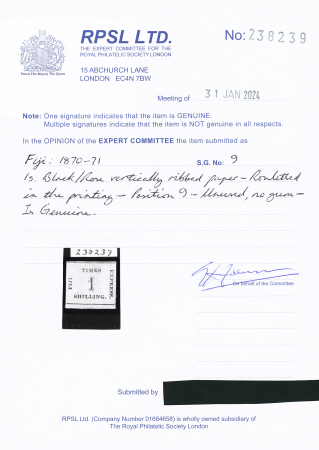 RPSL LTD.
THE EXPERT COMMITTEE FOR THE
ROYAL PHILATELIC SOCIETY LONDON
No: 238239
15 ABCHURCH LANE
LONDON EC4N 7BW
Meeting of 31 JAN 2024
Note: One signature indicates that the item is GENUINE.
Multiple signatures indicate that the item is NOT genuine in all respects.
In the OPINION of the EXPERT COMMITTEE the item submitted as
Fiji: 1870-71 S.G. No: 9
1s. Black/Rose vertically ribbed paper - Rouletted
in the printing - Position 9 - Unused, no gum -
Is Genuine.
238239
FIJI TIMES EXPRESS
1
SHILLING.
On behalf of the Committee
Submitted by
RPSL Ltd. (Company Number 01684658) is wholly owned subsidiary of
The Royal Philatelic Society London